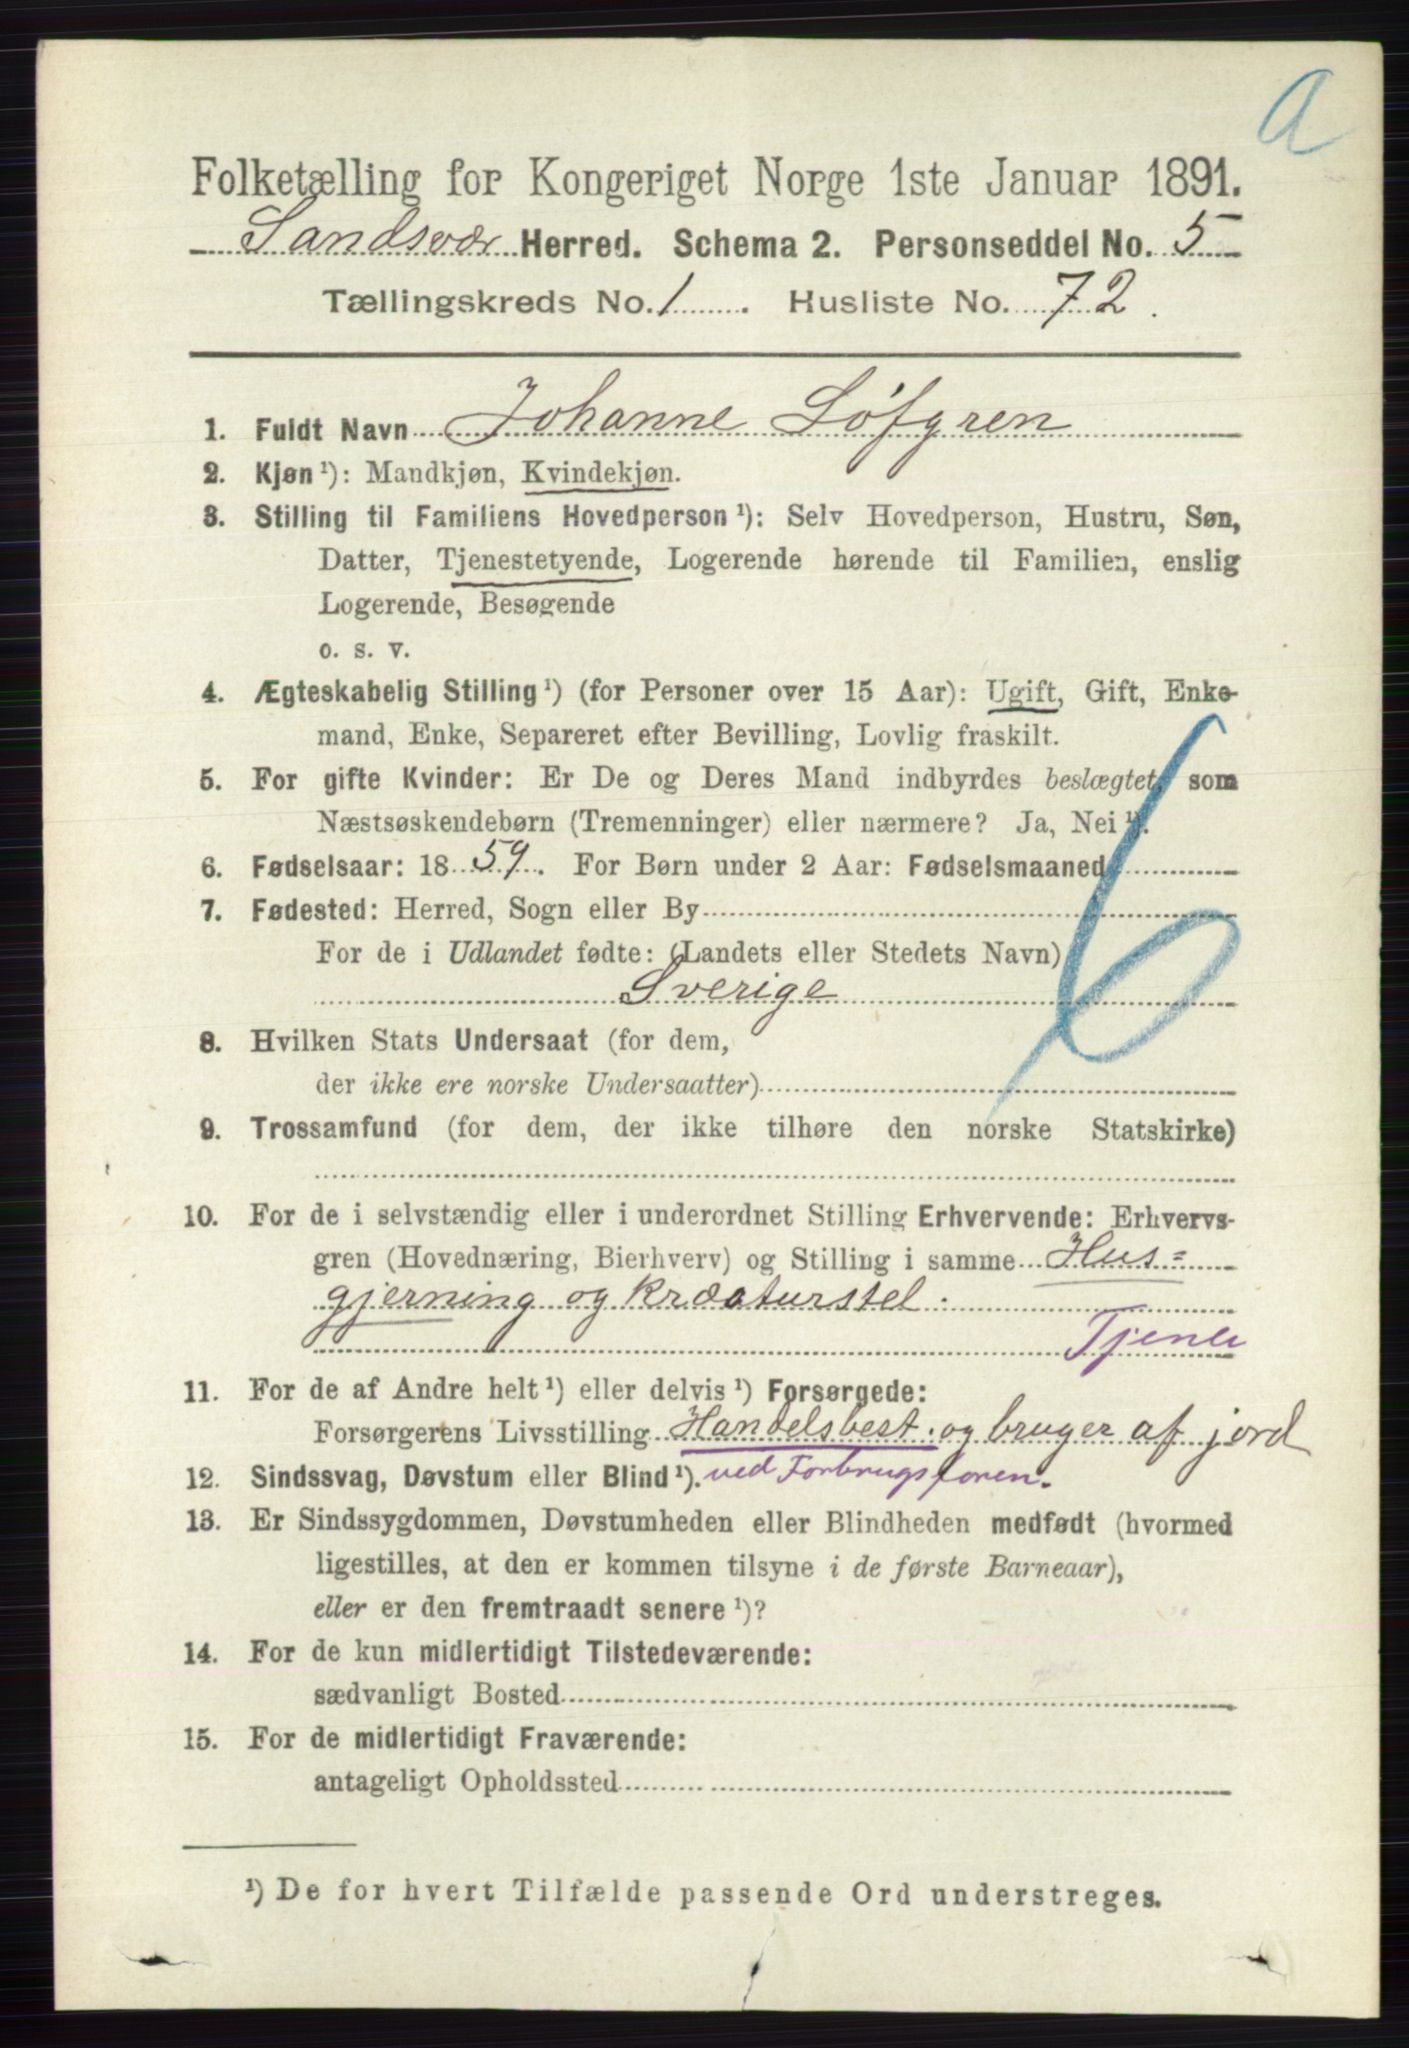 a
Folketælling for Kongeriget Norge 1ste Januar 1891.
Sandsvær Herred. Schema 2. Personseddel No. 5
Tællingskreds No. 1 . Husliste No. 72.
1. Fuldt Navn Johanne Löfgren
2. Kjøn ¹): Mandkjøn, Kvindekjøn.
3. Stilling til Familiens Hovedperson ¹): Selv Hovedperson, Hustru, Søn,
Datter, Tjenestetyende, Logerende hørende til Familien, enslig
Logerende, Besøgende
o. s. v.
4. Ægteskabelig Stilling ¹) (for Personer over 15 Aar): Ugift, Gift, Enke-
mand, Enke, Separeret efter Bevilling, Lovlig fraskilt.
5. For gifte Kvinder: Er De og Deres Mand indbyrdes beslægtet, som
Næstsøskendebørn (Tremenninger) eller nærmere? Ja, Nei ¹).
6
6. Fødselsaar: 18 59. For Børn under 2 Aar: Fødselsmaaned
7. Fødested: Herred, Sogn eller By
For de i Udlandet fødte: (Landets eller Stedets Navn)
Sverige
8. Hvilken Stats Undersaat (for dem,
der ikke ere norske Undersaatter)
9. Trossamfund (for dem, der ikke tilhøre den norske Statskirke)
10. For de i selvstændig eller i underordnet Stilling Erhvervende: Erhvervs-
gren (Hovednæring, Bierhverv) og Stilling i samme Hus=
gjerning og kreaturstel.
Tjener
11. For de af Andre helt ¹) eller delvis ¹) Forsørgede:
Forsørgerens Livsstilling Handelsbest. og bruger af jord
12. Sindssvag, Døvstum eller Blind ¹). ved Forbrugsforen.
13. Er Sindssygdommen, Døvstumheden eller Blindheden medfødt (hvormed
ligestilles, at den er kommen tilsyne i de første Barneaar),
eller er den fremtraadt senere ¹)?
14. For de kun midlertidigt Tilstedeværende:
sædvanligt Bosted
15. For de midlertidigt Fraværende:
antageligt Opholdssted
¹) De for hvert Tilfælde passende Ord understreges.